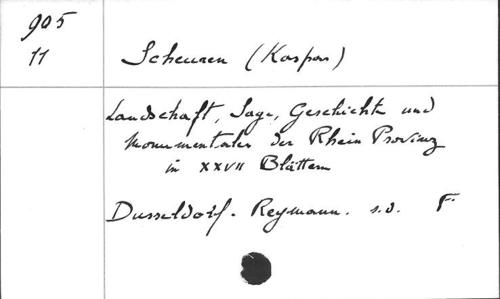 905
11
Scheuren (Kaspar)
Landschaft, Sage, Geschichte und
Monumentales der Rhein Provinz
in XXVII Blättern
Dusseldorf. Reymann. s.d. F.